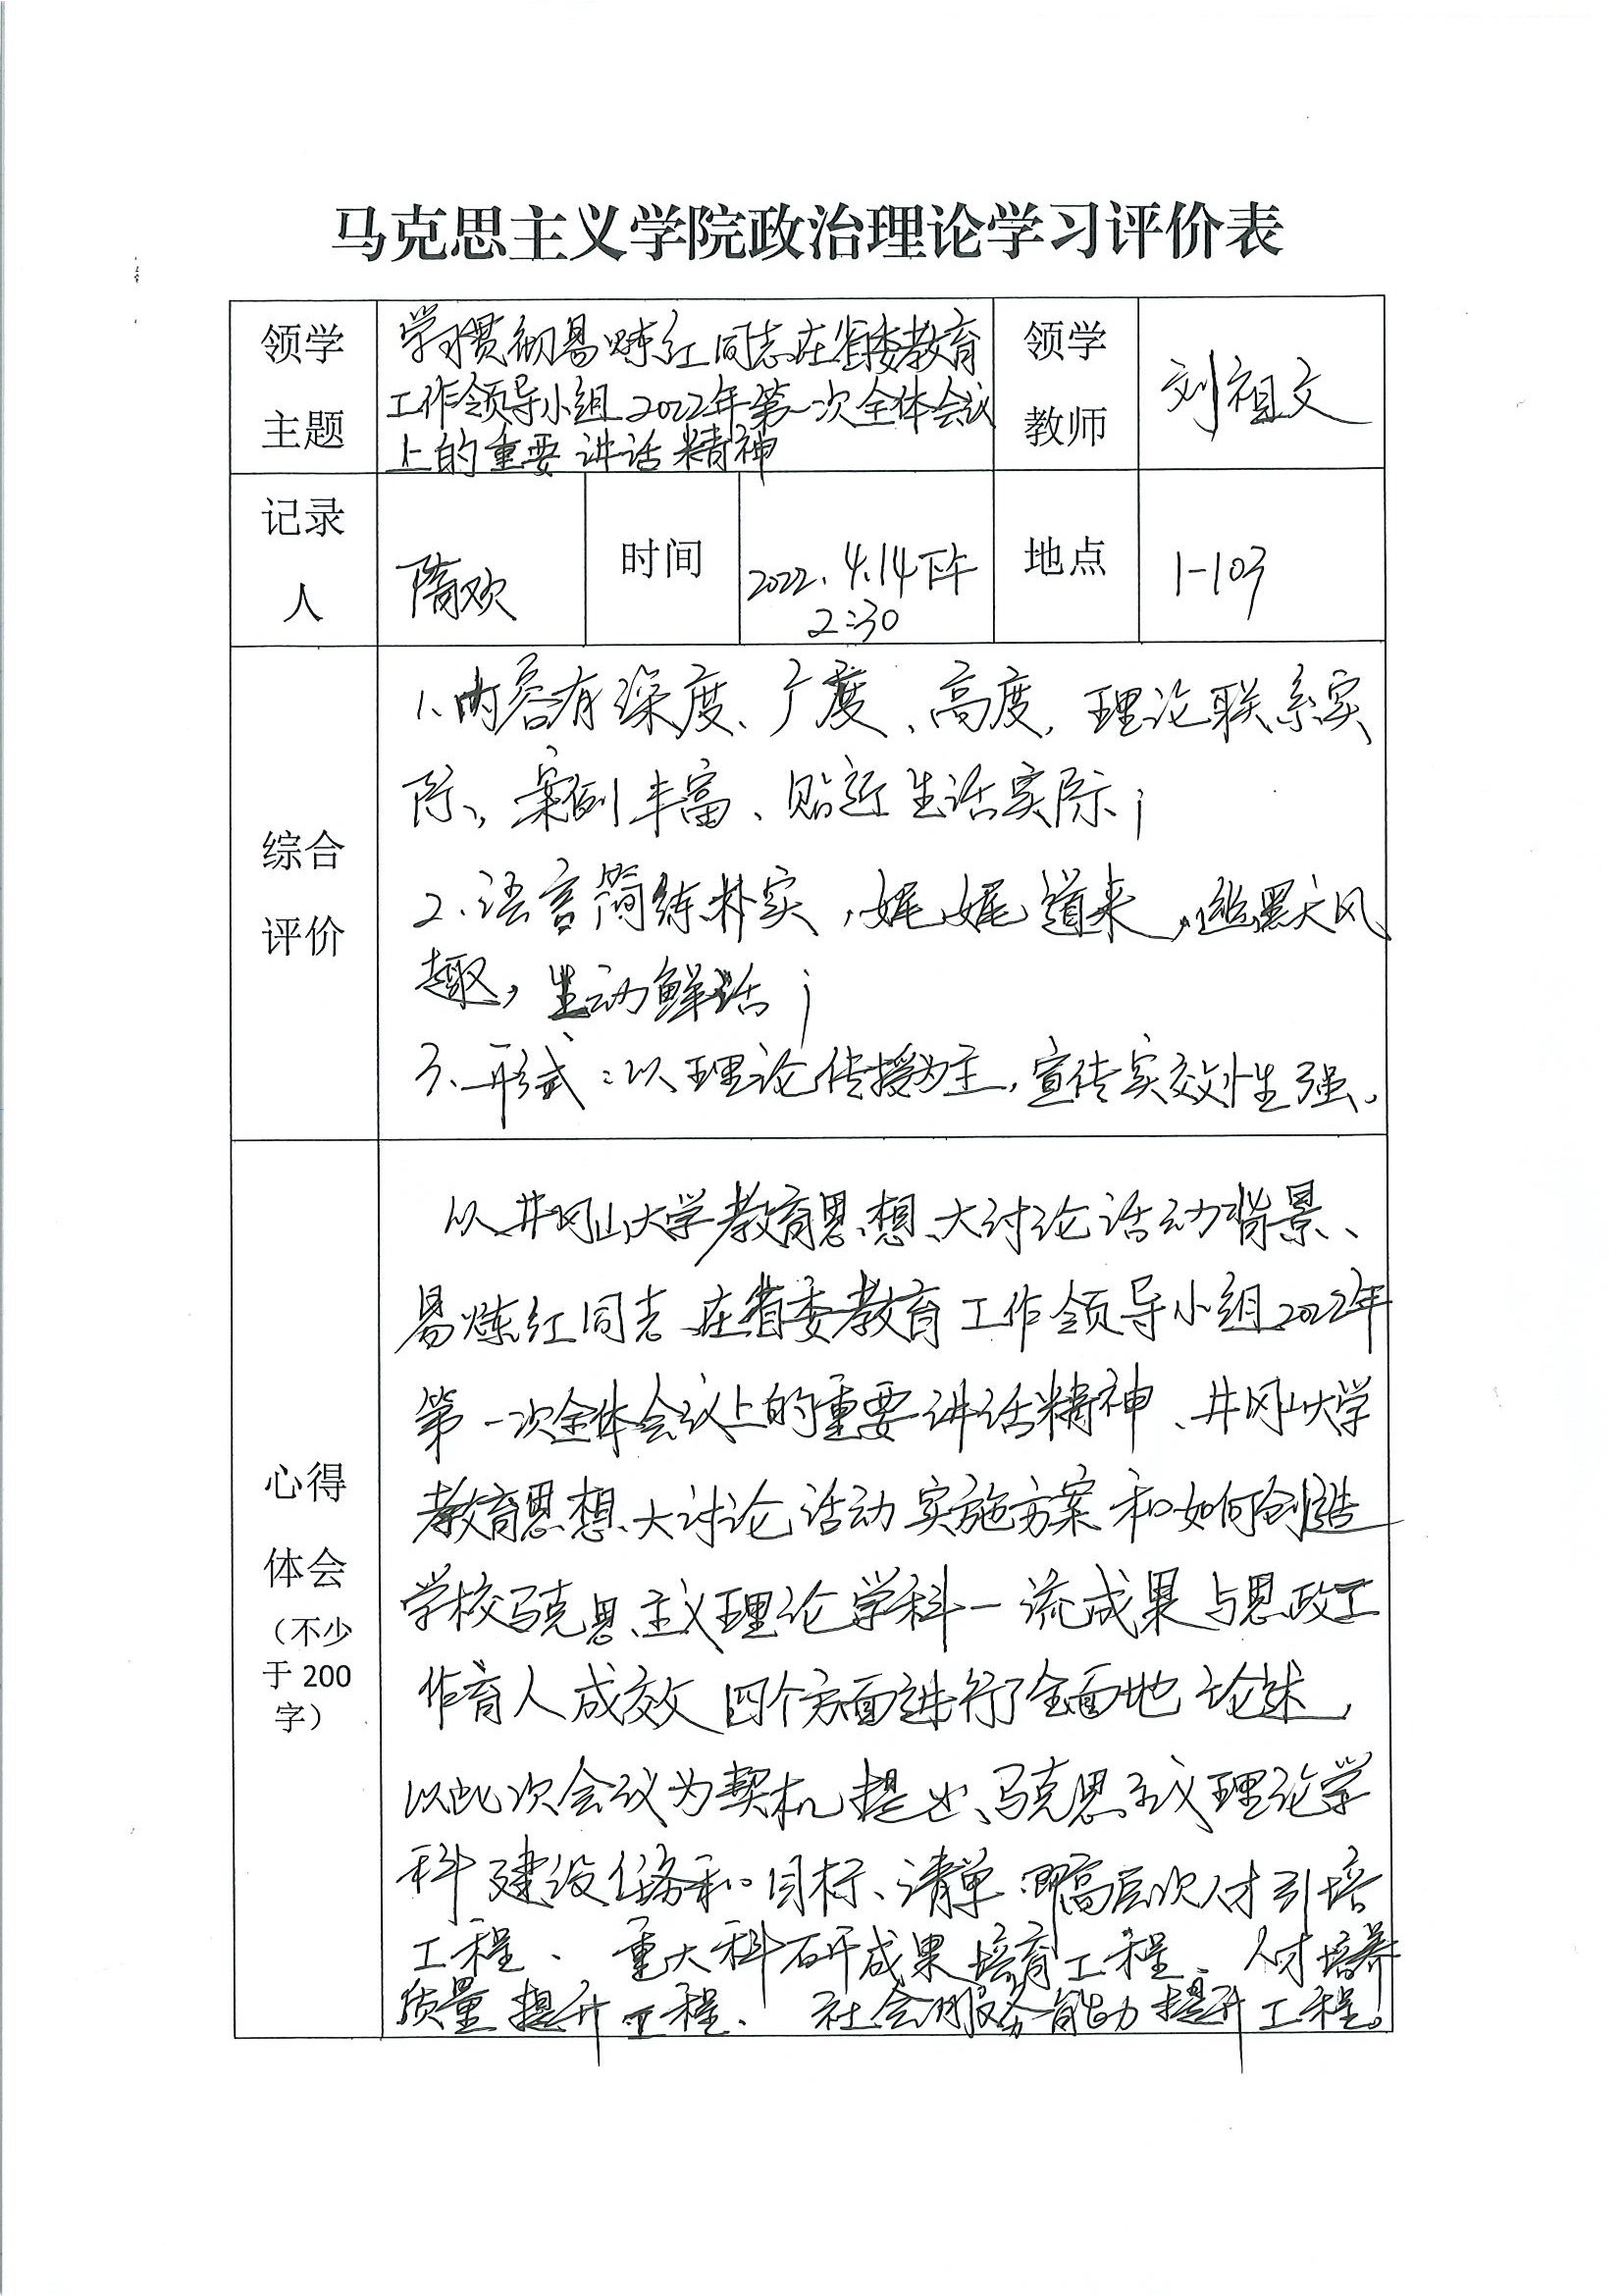 马克思主义学院政治理论学习评价表
领学
主题
学习贯彻易炼红同志在省委教育
工作领导小组2022年第一次全体会议
上的重要讲话精神
领学
教师
刘祖文
记录
人
隋欢
时间
2022.4.14下午
2:30
地点
1-103
综合
评价
1、内容有深度、广度、高度,理论联系实
际、案例丰富、贴近生活实际;
2、语言简练朴实,娓娓道来,幽默风
趣,生动鲜活;
3、形式:以理论传授为主,宣传实效性强。
心得
体会
(不少
于200
字)
以井冈山大学教育思想大讨论活动背景、
易炼红同志在省委教育工作领导小组2022年
第一次全体会议上的重要讲话精神、井冈山大学
教育思想大讨论活动实施方案和如何创造
学校马克思主义理论学科一流成果与思政工
作育人成效四个方面进行了全面地论述,
以此次会议为契机提出、马克思主义理论学
科建设任务和目标、清单:即高层次人才引培
工程、重大科研成果培育工程、人才培养
质量提升工程、社会服务能力提升工程。